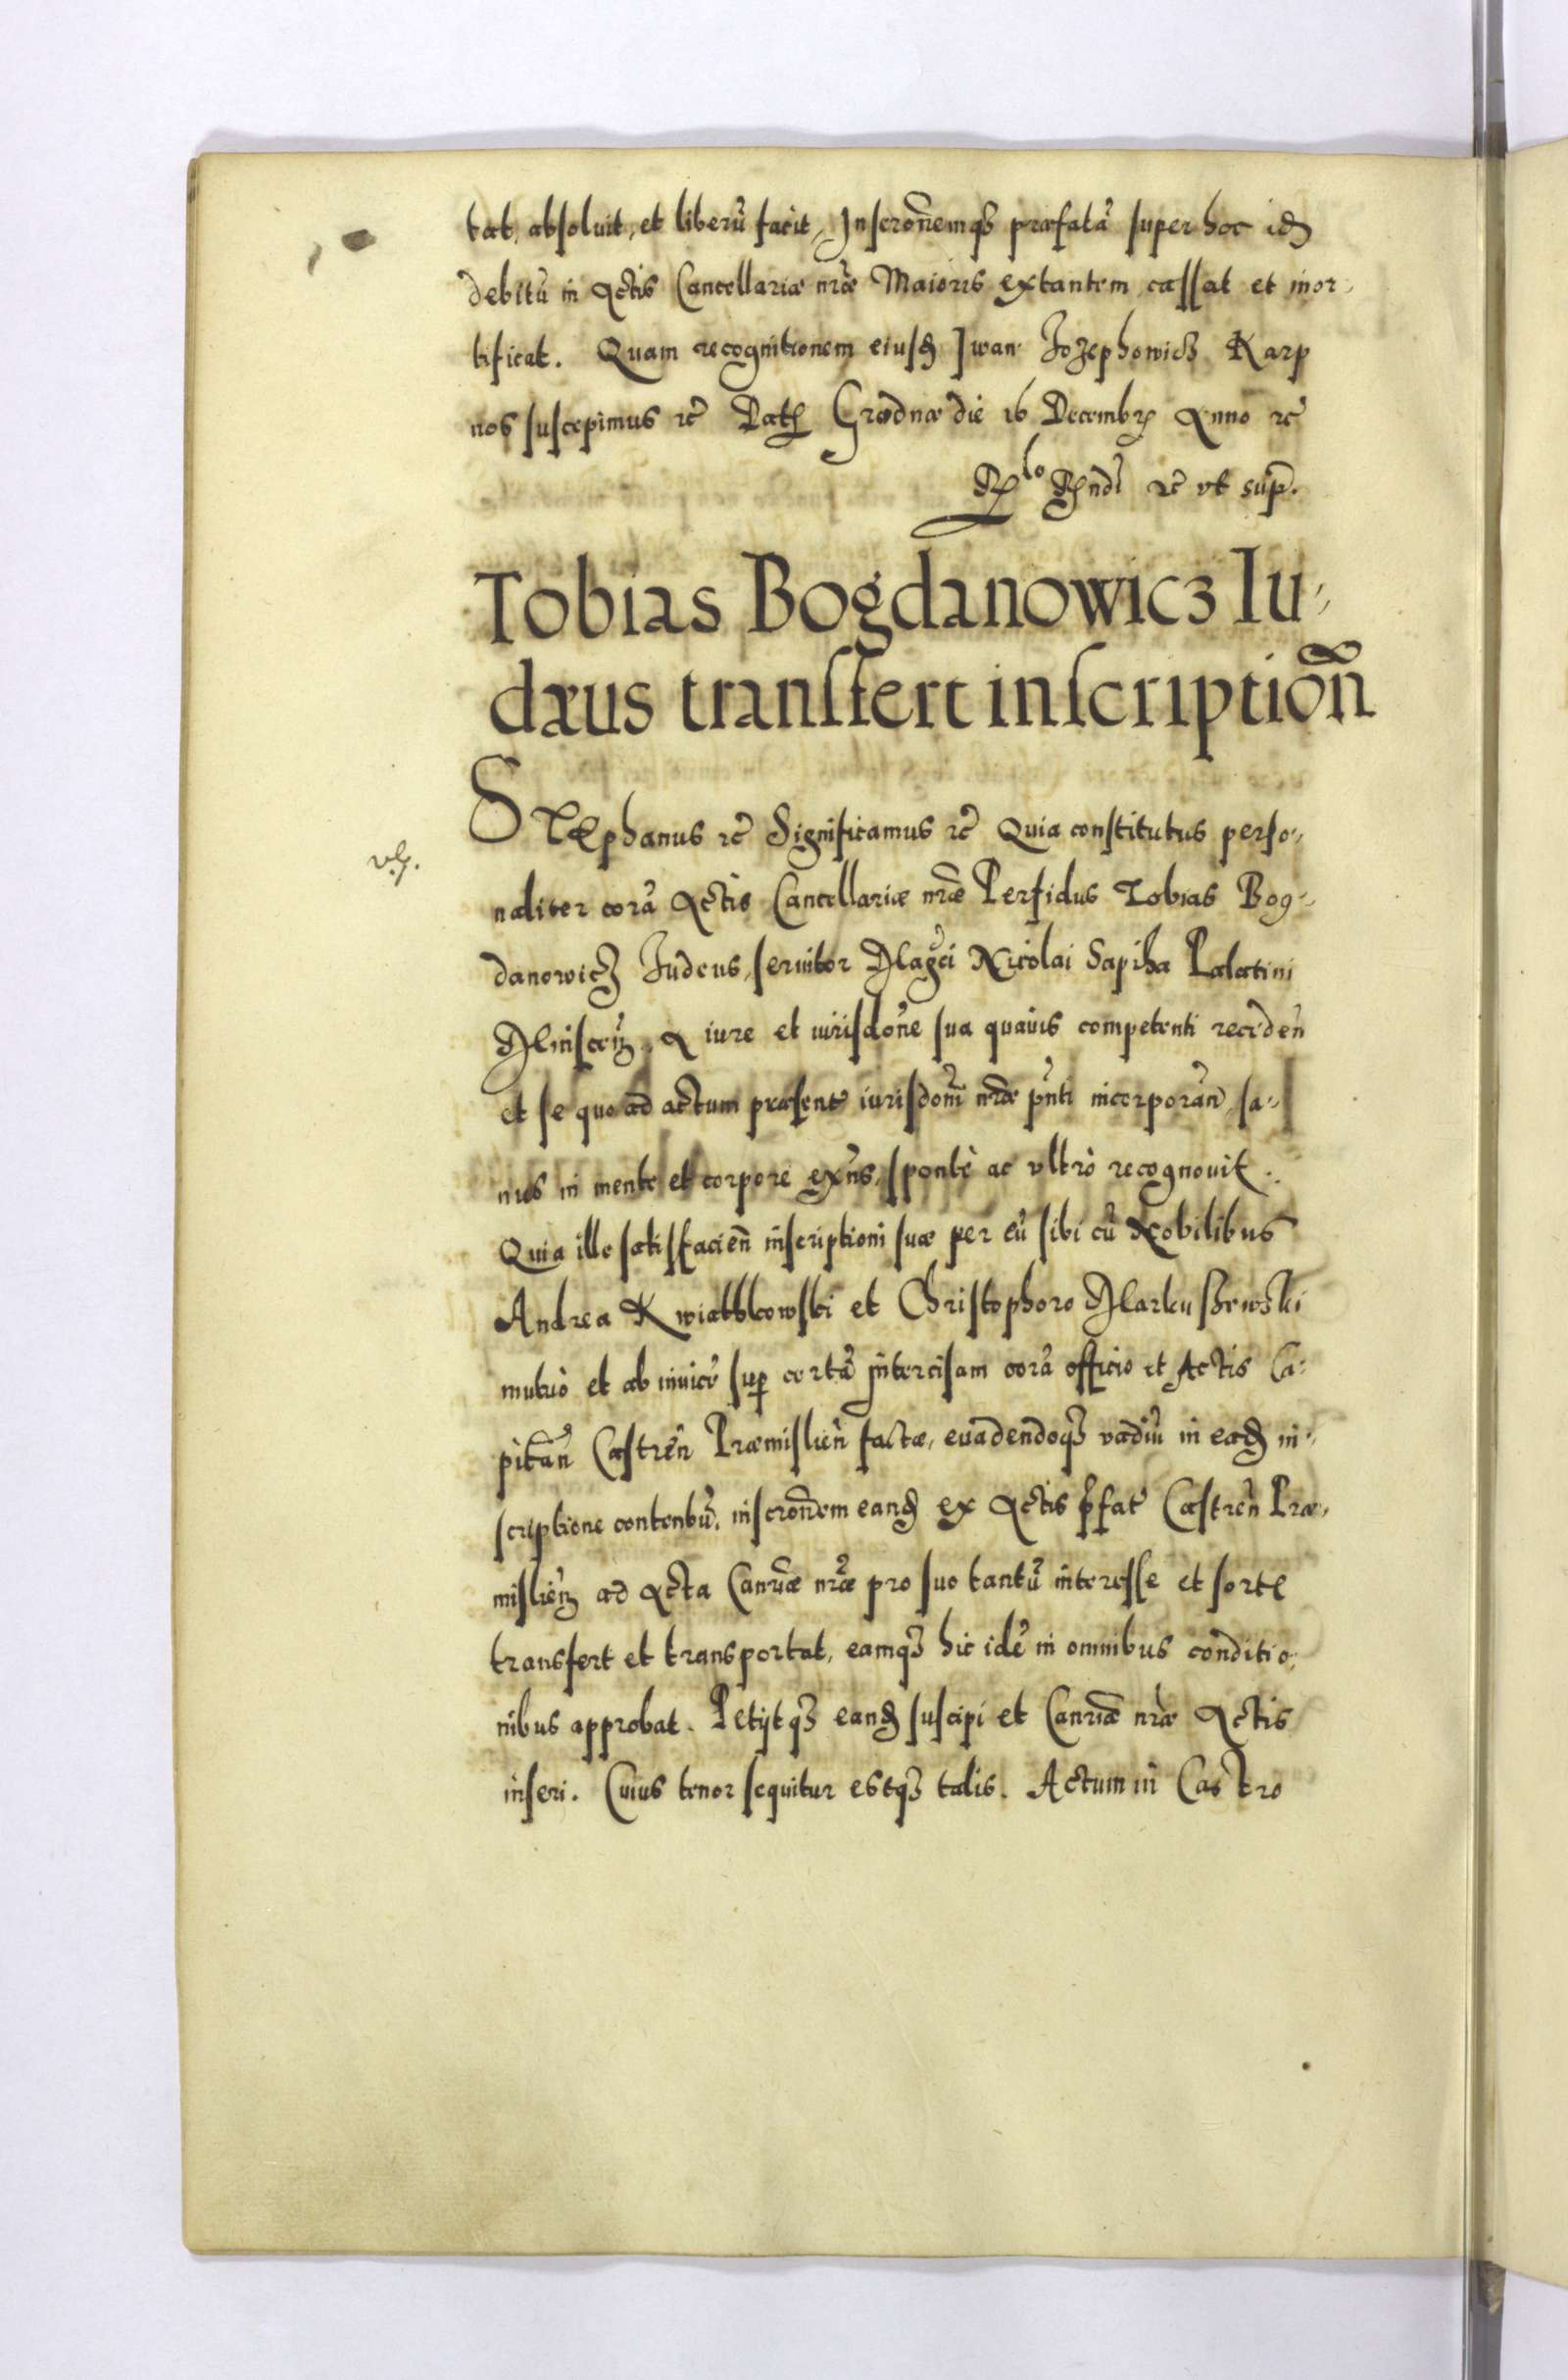 tat, absoluit, et liberũ facit, Inscrõnemqȝ præfatã super hoc idȝ
debitũ in Actis Cancellariæ nr̃æ Maioris extantem cassat et mor-
tificat. Quam recognitionem eiusdȝ Iwan Jozephowicȝ Karp
nos suscepimus ꝛc̃ Datȝ Grodnæ die 16 Decembrȝ Anno ꝛc̃
Rlo Rndi ꝛc̃ vt sup̃.
Tobias Bogdanowicȝ Iu-
dæus transfert inscription̄
Stephanus ꝛc̃ Significamus ꝛc̃ Quia constitutus perso-
naliter corã Actis Cancellariæ nr̃æ Perfidus Tobias Bog-
danowicȝ Judeus, seruitor Magci Nicolai Sapiha Palatini
Minscen̄, A iure et iurisdõne sua quauis competenti receden̄
et se quo ad actum præsentẽ iurisdoni nr̃æ pñti incorporan̄, sa-
nus in mente et corpore exñs, spontè ac vltrò recognouit.
Quia ille satisfacien̄ inscriptioni suæ per eũ sibi cũ Nobilibus
Andrea Kwiatkowski et Christophoro Markuszewski
mutuò et ab inuicẽ sup certã intercisam corã officio et Actis Ca-
pitan̄ Castren̄ Præmislien̄ factæ, euadendoqȝ vadiũ in eadȝ in-
scriptione contentũ, inscrõnem eandȝ ex Actis p̃fatẽ Castren̄ Præ-
mislien̄ ad Acta Canr̃iæ nr̃æ pro suo tantũ interesse et sorte
transfert et transportat, eamqȝ hic idẽ in omnibus conditio-
nibus approbat. Petijtqȝ eandȝ suscipi et Canr̃iæ nr̃æ Actis
inseri. Cuius tenor sequitur estqȝ talis. Actum in Castro